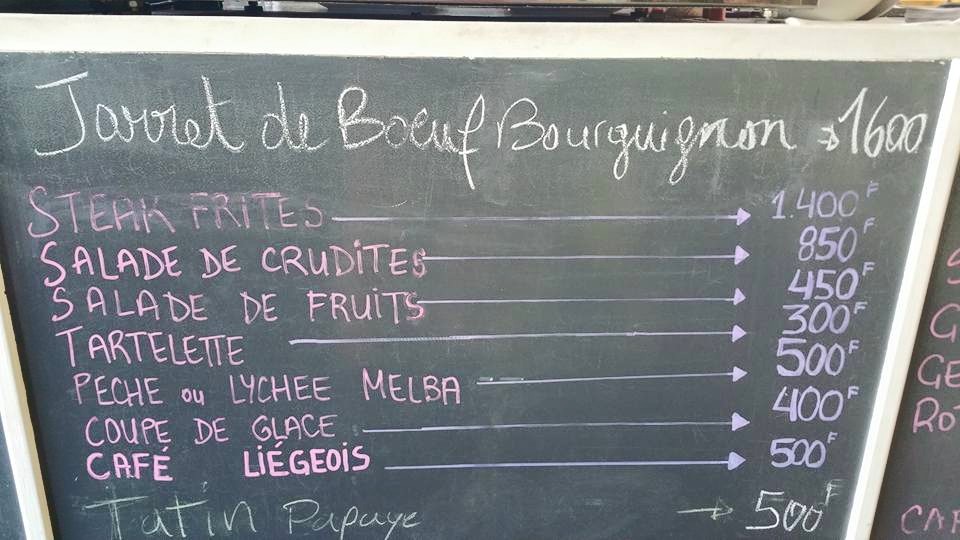 Jarret de Boeuf Bourguignon → 1600
STEAK FRITES → 1.400F
SALADE DE CRUDITES → 850F
SALADE DE FRUITS → 450F
TARTELETTE → 300F
PECHE ou LYCHEE MELBA → 500F
COUPE DE GLACE → 400F
CAFÉ LIÉGEOIS → 500F
Tatin Papaye → 500F